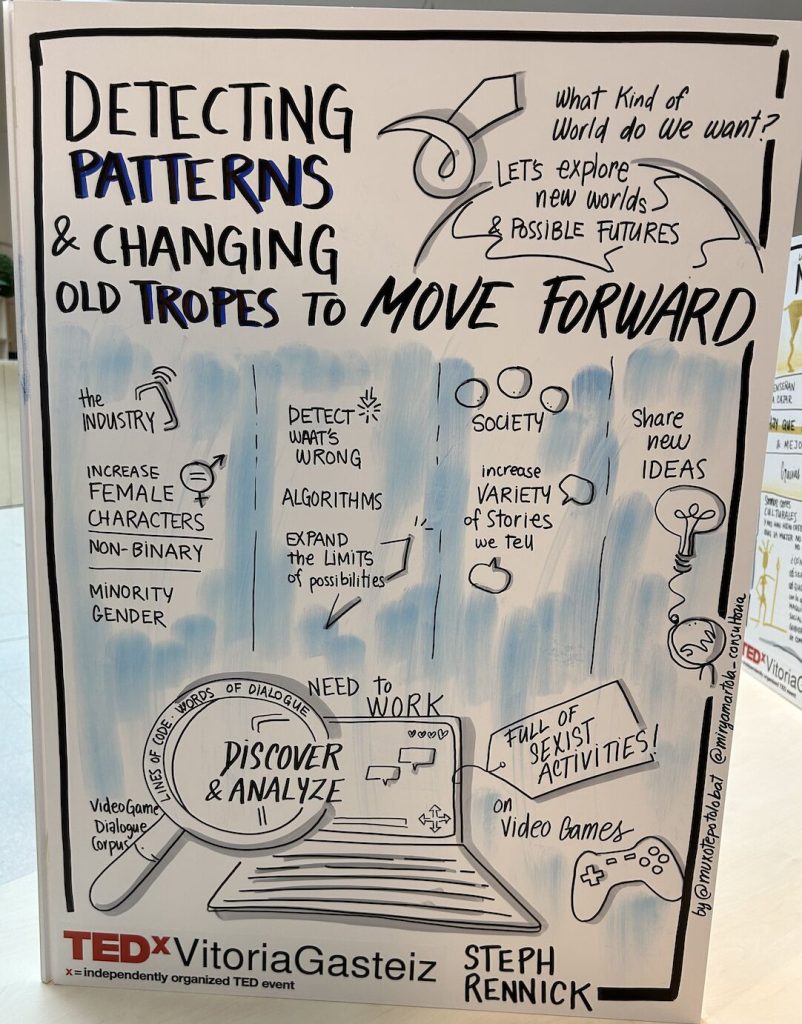 DETECTING
PATTERNS
& CHANGING
OLD TROPES TO MOVE FORWARD
What Kind of
World do we want?
LET'S explore
new worlds
& POSSIBLE FUTURES
the
INDUSTRY
INCREASE
FEMALE
CHARACTERS
NON-BINARY
MINORITY
GENDER
DETECT
WAAT'S
WRONG
ALGORITHMS
EXPAND
the LIMITS
of possibilities
SOCIETY
increase
VARIETY
of Stories
we tell
Share
new
IDEAS
NEED to
WORK
LINES OF CODE. WORDS OF DIALOGUE
DISCOVER
& ANALYZE
VideoGame
Dialogue
Corpus
FULL OF
SEXIST
ACTIVITIES!
on
Video Games
by @muxotepotolobat @miryamartola_consultoria
TEDxVitoriaGasteiz
x = independently organized TED event
STEPH
RENNICK
ENSEÑAN
A CAZAR
QUE
& MEJO
CULTURALES
TEDxVitoriaG
independently organized TED event